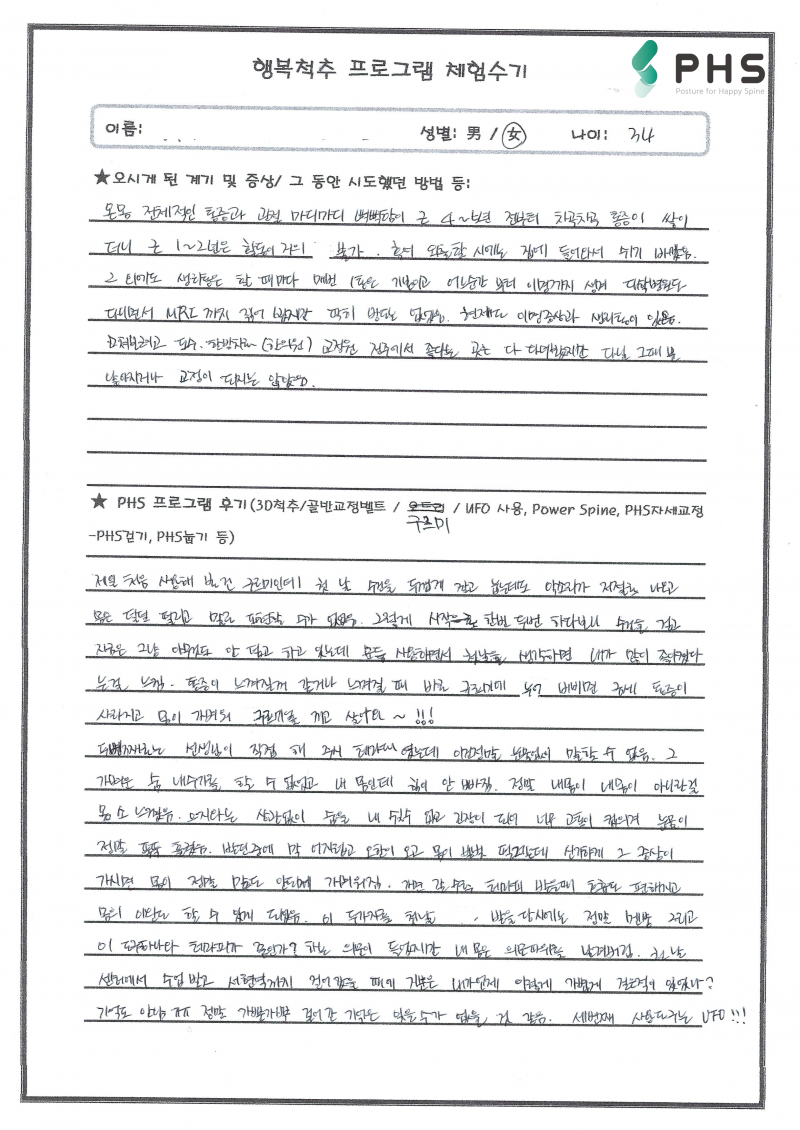 행복척추 프로그램 체험수기
PHS
Posture for Happy Spine
이름:
성별: 男 / 女 나이: 34
★오시게 된 계기 및 증상/ 그 동안 시도했던 방법 등:
온몸 전체적인 통증과 관절 마디마디 뻑뻑함이 근 4~5년 전부터 차곡차곡 통증이 쌓이
더니 근 1~2년은 활동이 거의 불가. 혹여 외출할 시에는 집에 들어와서 쉬기 바빴음.
그 외에도 생리통은 할 때마다 매번 기본이고 어느순간 부터 이명까지 생겨 대학병원도
다니면서 MRI 까지 찍어 봤지만 딱히 방도는 없었음. 현재도 이명증상과 생리통이 있음.
고쳐보려고 한방치료(한의원) 교정원 전주에서 좋다는 곳은 다 다녀봤지만 다닐 그때 뿐
나아지거나 교정이 되지는 않았음.
★ PHS 프로그램 후기(3D척추/골반교정벨트 / 오트리 / UFO 사용, Power Spine, PHS자세교정
구르미
-PHS걷기, PHS눕기 등)
제일 처음 사용해 본 건 구르미인데 첫 날 수건을 두껍게 깔고 했는데도 악소리가 저절로 나오고
몸은 덜덜 떨리고 말로 표현할 수가 없었음. 그렇게 시작으로 한번 두번 하다보니 수건을 걷고
지금은 그냥 아무것도 안 덮고 하고 있는데 사용하면서 첫날을 생각하면 내가 많이 좋아졌다
는걸 느낌. 통증이 느껴질거 같거나 느껴질 때 바로 구르미에 누워 비비면 금세 통증이
사라지고 몸이 가벼워 구르미를 끼고 살아요~!!!
두번째로는 선생님이 직접 해 주시 테라피 였는데 이건정말 눈물없이 말할 수 없음. 그
가벼운 숨 내쉬기를 할 수 없었고 내 몸인데 힘이 안 빠짐. 정말 내몸이 내몸이 아니란걸
몸소 느꼈음. 의지와는 상관없이 숨을 내 쉴수 없고 긴장이 되어 너무 고통이 컸으며 눈물이
정말 펑펑 흘렀음. 받던중에 막 어지럽고 오한이 오고 몸이 했는데 신기하게 그 증상이
가시면 몸이 정말 말도 안되게 가벼워짐. 가면 갈수록 테라피 받을때 호흡도 편해지고
몸의 이완도 할 수 있게 되었음. 이 두가지를 첫날 받을 당시에는 정말 멘붕 그리고
이 도구하나와 테라피가 끝인가? 하는 의문이 들었지만 내 몸은 의문따위를 날려버림. 첫날
센터에서 수업 받고 서현역까지 걸어갔을 때의 기분은 내가언제 이렇게 가볍게 걸은적이 있었나?
기억도 안남 ㅠㅠ 정말 가뿐가뿐 걸어간 기억은 잊을수가 없을 것 같음. 세번째 사용도구는 UFO!!!